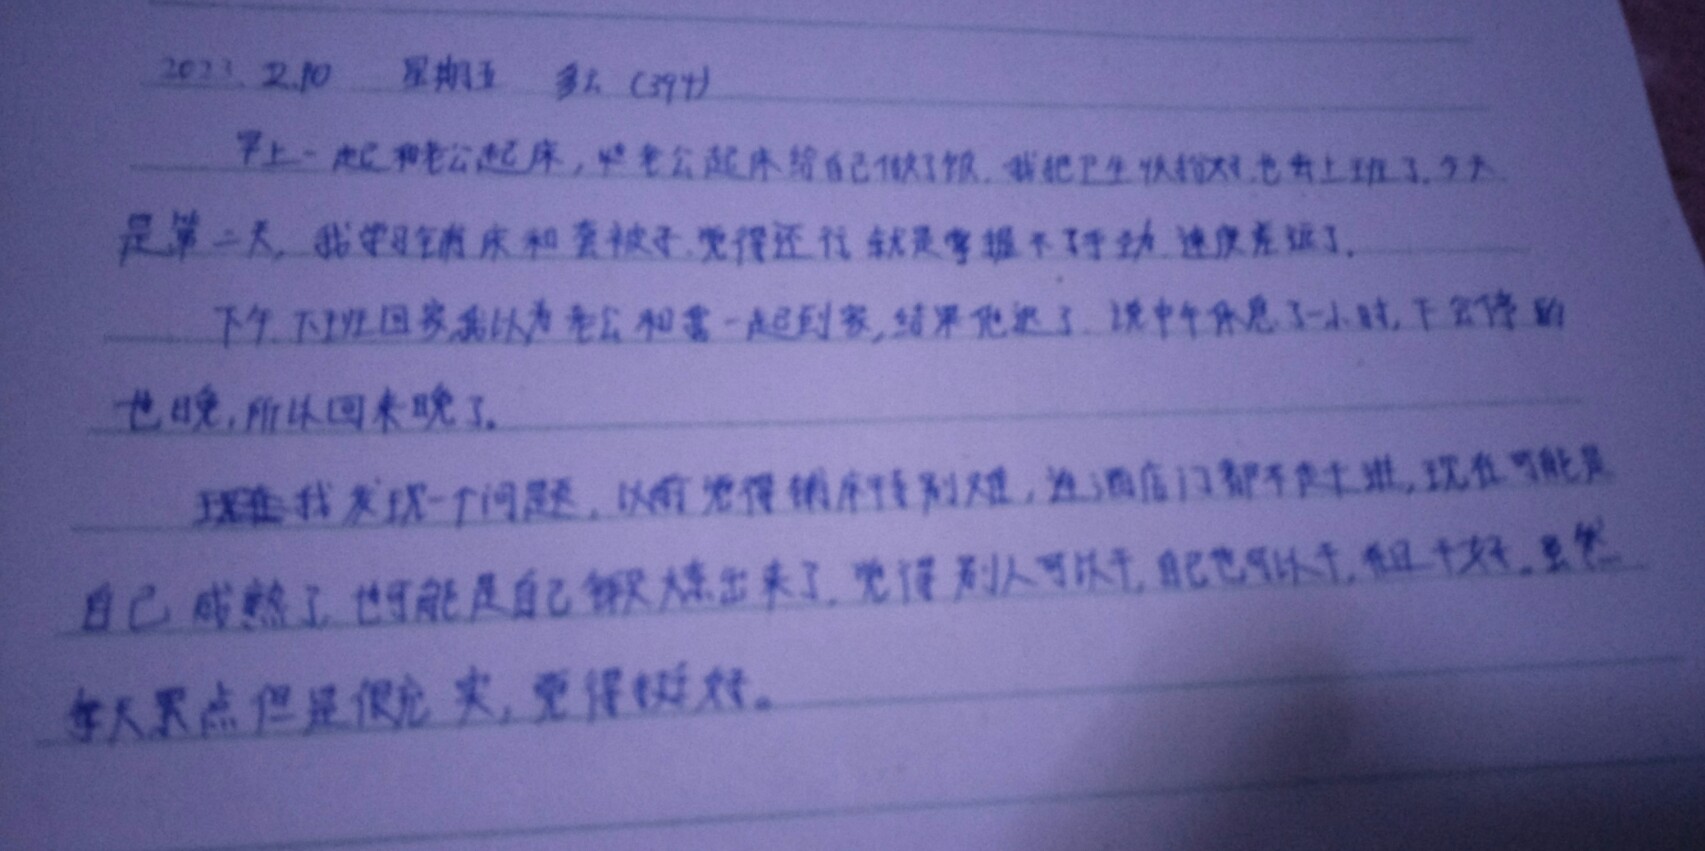 2023.2.10 星期五 多云(394)
早上一起和老公起床,老公起床给自己做了饭.我把卫生快拾好.也去上班了.今天
是第二天,我学习铺床和套被子.觉得还行就是掌握不了手劲.速度差远了.
下午下班回家,我以为老公和雪一起到家,结果他迟了.说中午休息了一小时,下会停的
也晚,所以回来晚了。
我发现一个问题,以前觉得铺床特别难,连酒店门都不进,现在可能是
自己成熟了,也可能是自己锻炼出来了.觉得别人可以干,自己也可以干.干好。虽然
每天累点但是很充实,觉得挺好。